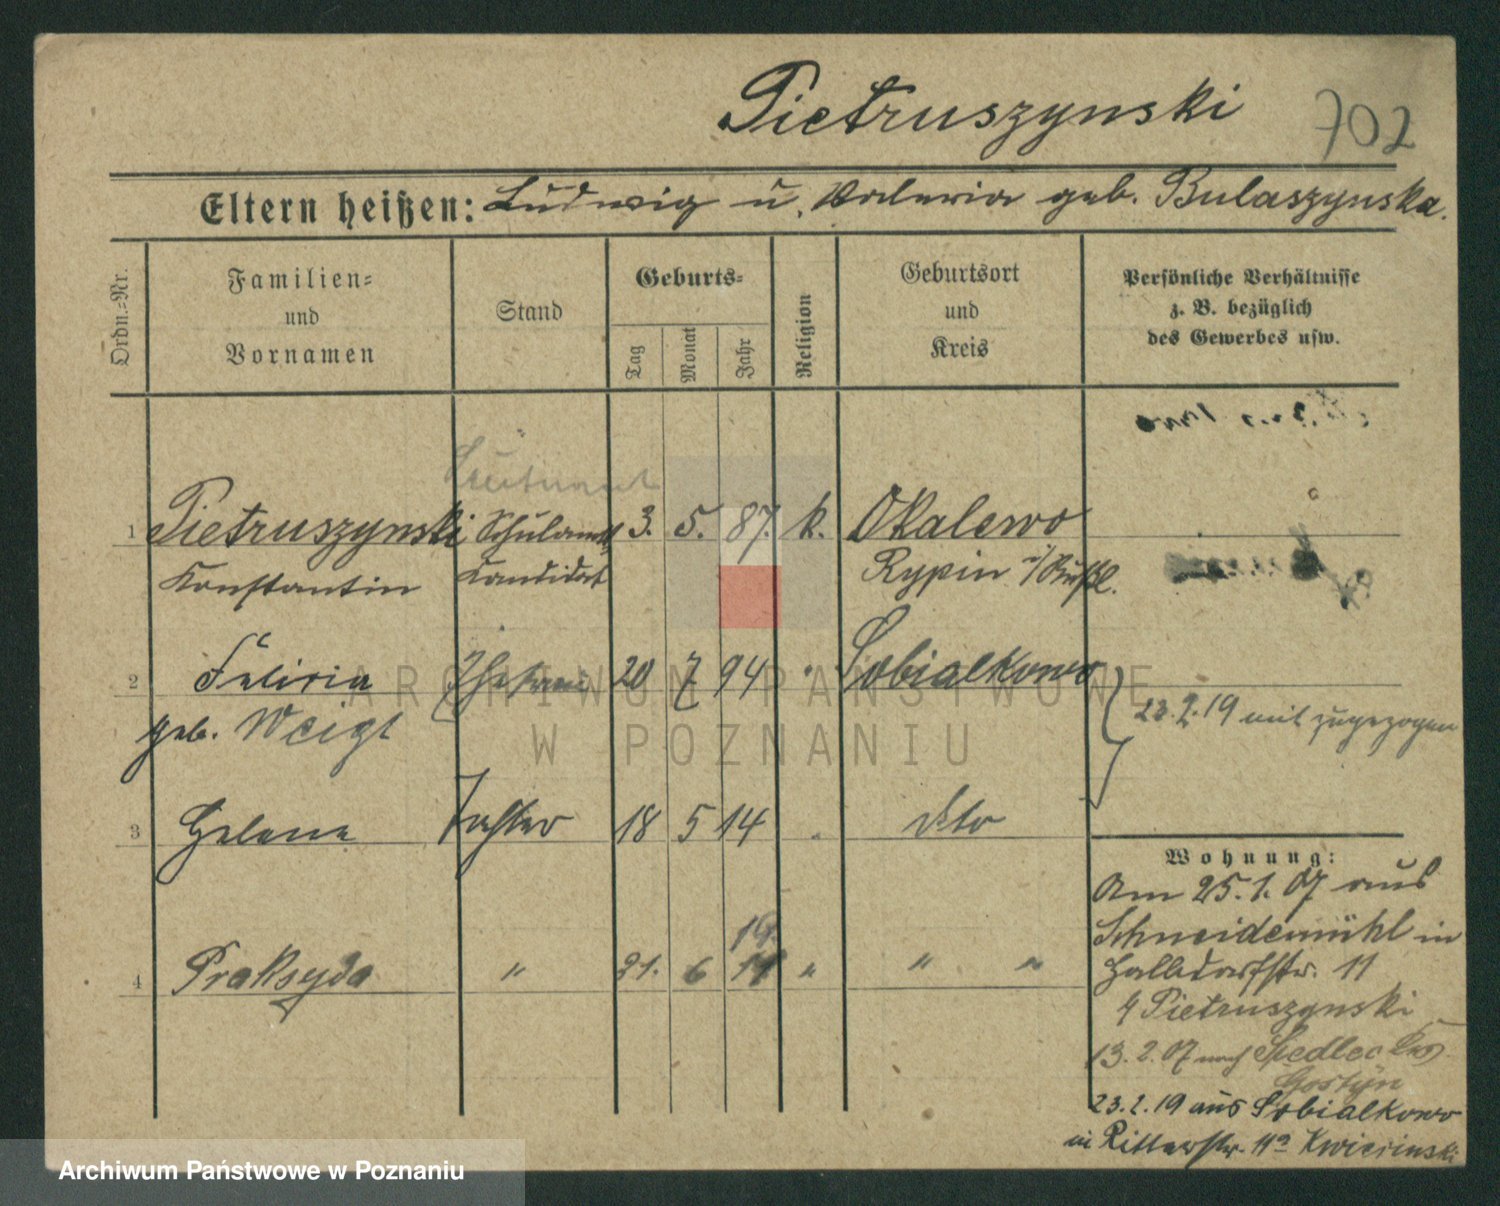 Pietruszynski 702
Eltern heißen: Ludwig u. Valeria geb. Bulaszynska.
Ordn.-Nr.
Familien-
und
Vornamen
Stand
Geburts-
Tag
Monat
Jahr
Religion
Geburtsort
und
Kreis
Persönliche Verhältnisse
z. B. bezüglich
des Gewerbes usw.
Leutnant
1 Pietruszynski Schulamts 3. 5. 87. k. Okalewo
Konstantin Kandidat Rypin i/Rußl.
2 Felicia Ehefrau 20 7 94 " Sobialkowo
geb. Weigt
23.2.19 mit zugezogen
3 Helene Tochter 18 5 14 " dto
19.
4 Praksyda " 21. 6 " " "
Wohnung:
Am 25.1.07 aus
Schneidemühl in
Halbdorfstr. 11
4 Pietruszynski
13.2.07 nach Siedlec Krs.
Gostyn
23.2.19 aus Sobialkowo
in Ritterstr. 11a Kwiecinski
ARCHIWUM PAŃSTWOWE
W POZNANIU
Archiwum Państwowe w Poznaniu